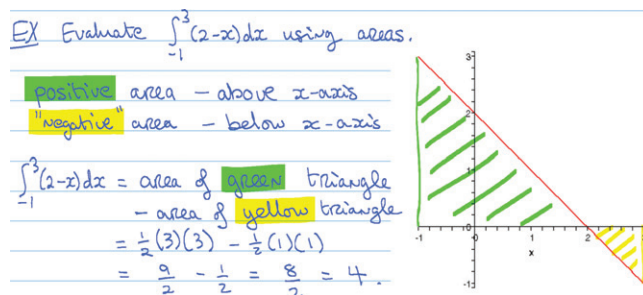 EX Evaluate ∫₋₁³ (2-x)dx using areas.
positive area - above x-axis
"negative" area - below x-axis
∫₋₁³ (2-x)dx = area of green triangle
- area of yellow triangle
= ½(3)(3) - ½(1)(1)
= 9/2 - 1/2 = 8/2 = 4.
3
2
1
0
-1 0 1 2 3
x
-1